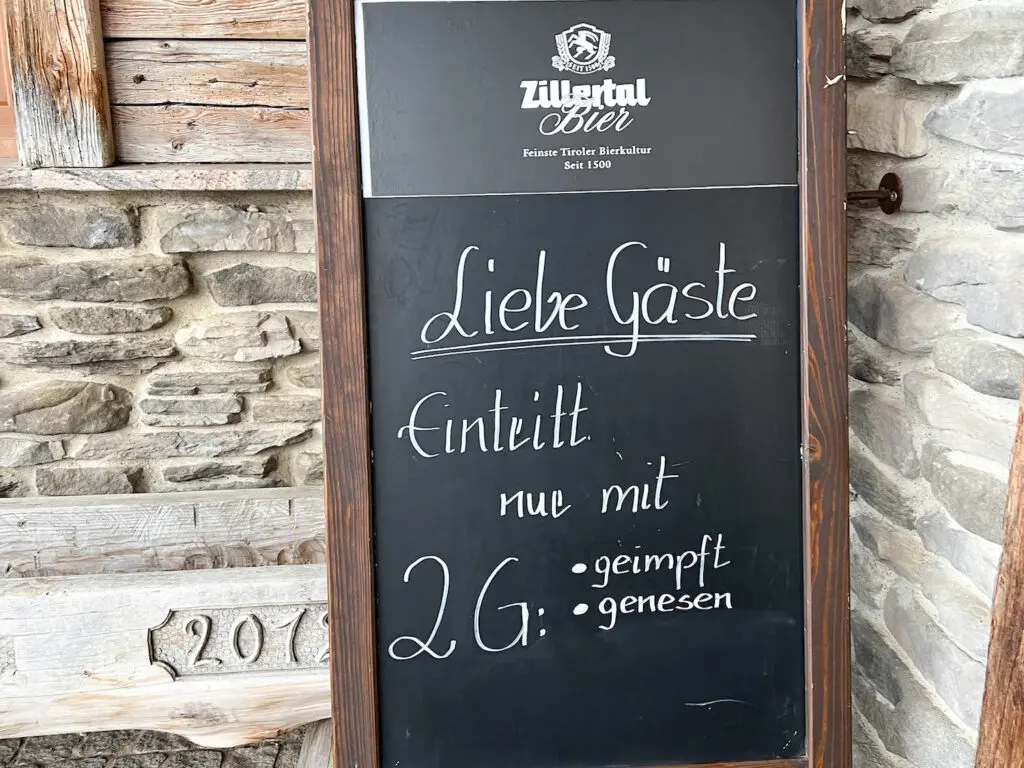 SEIT 1500
Zillertal
Bier
Feinste Tiroler Bierkultur
Seit 1500
Liebe Gäste
Eintritt
nur mit
2G:
• geimpft
• genesen